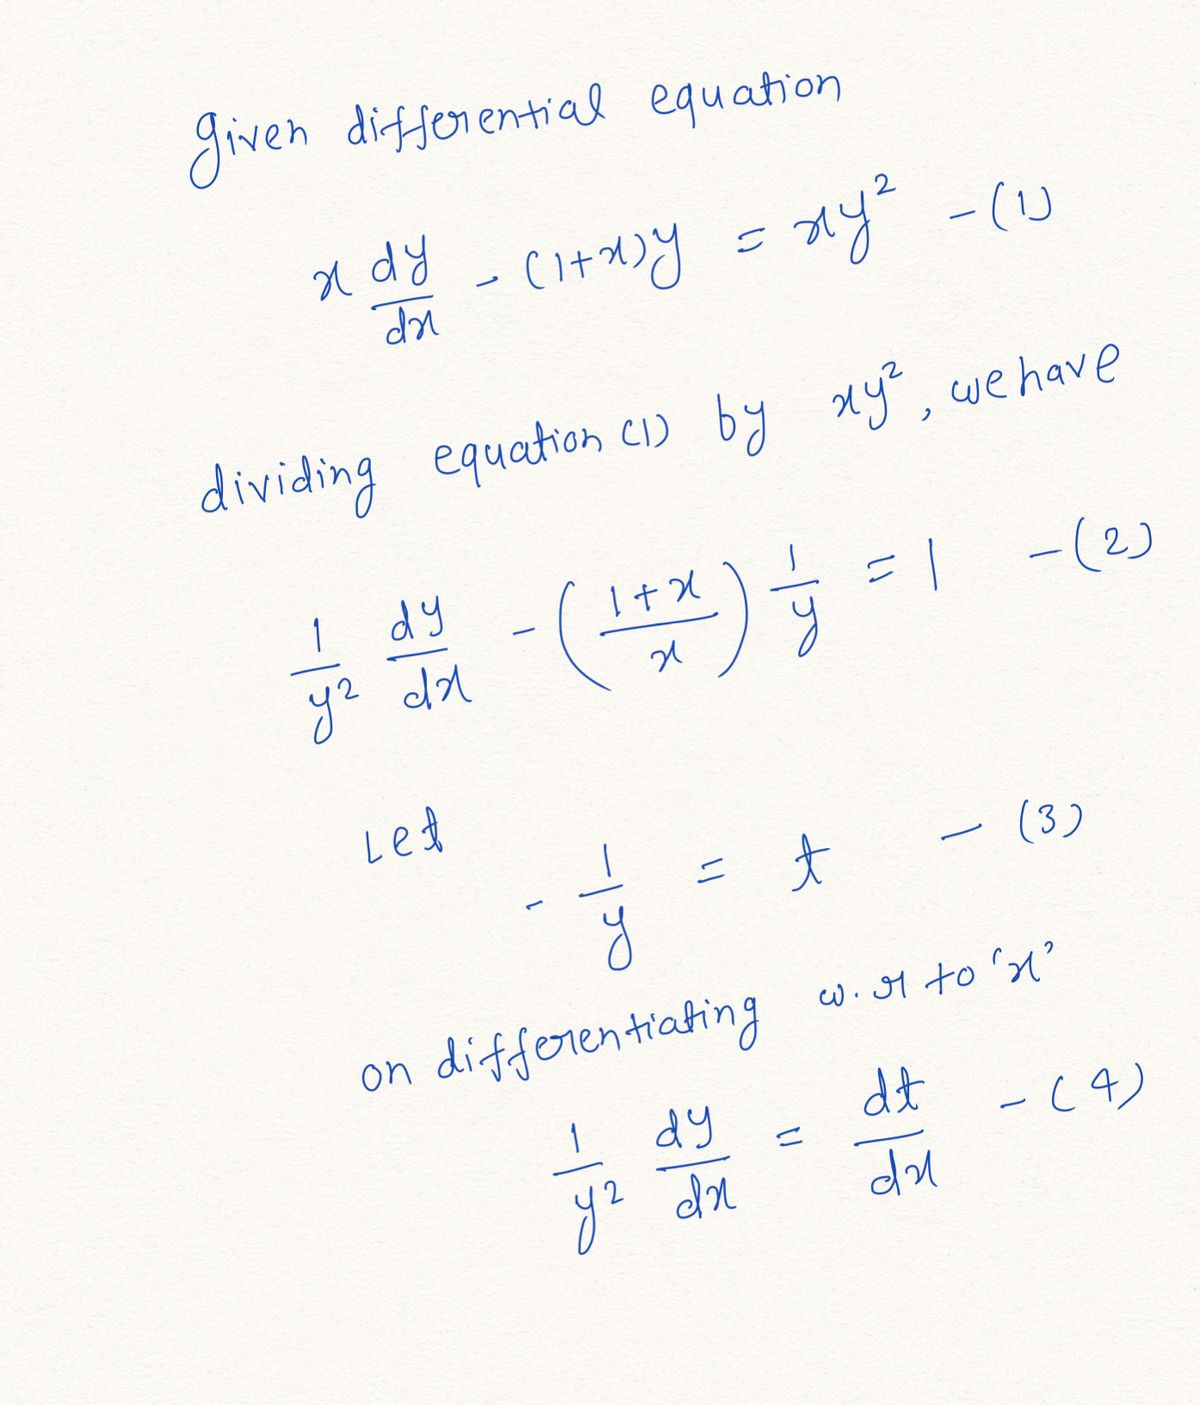 given differential equation
x dy/dx - (1+x)y = xy² - (1)
dividing equation (1) by xy², we have
1/y² dy/dx - ((1+x)/x) 1/y = 1 - (2)
Let
- 1/y = t - (3)
on differentiating w.r to 'x'
1/y² dy/dx = dt/dx - (4)